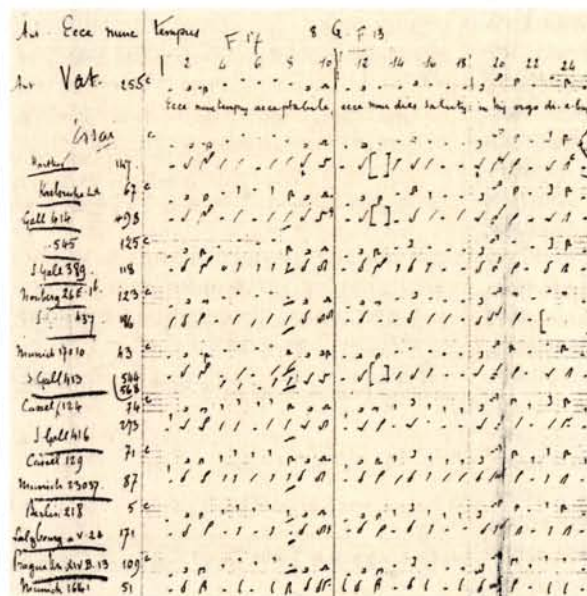 Ant. Ecce nunc tempus F 17 8 G F 13
2 4 6 8 10 12 14 16 18 20 22 24
Ant Vat. 255 c
Ecce nunc tempus acceptabile, ecce nunc dies salutis: in his ergo diebus
c
147
67 c
Gall 414 498
545 125 c
S Gall 389 118
123 c
437
Munich 17010 43 c
S Gall 413 544
568
Cassel 124 74 c
S Gall 416 293
Cassel 129 71 c
Munich 23037 87
Berlin 218 5 c
171
Prague XIV B. 13 109 c
Munich 1641 51